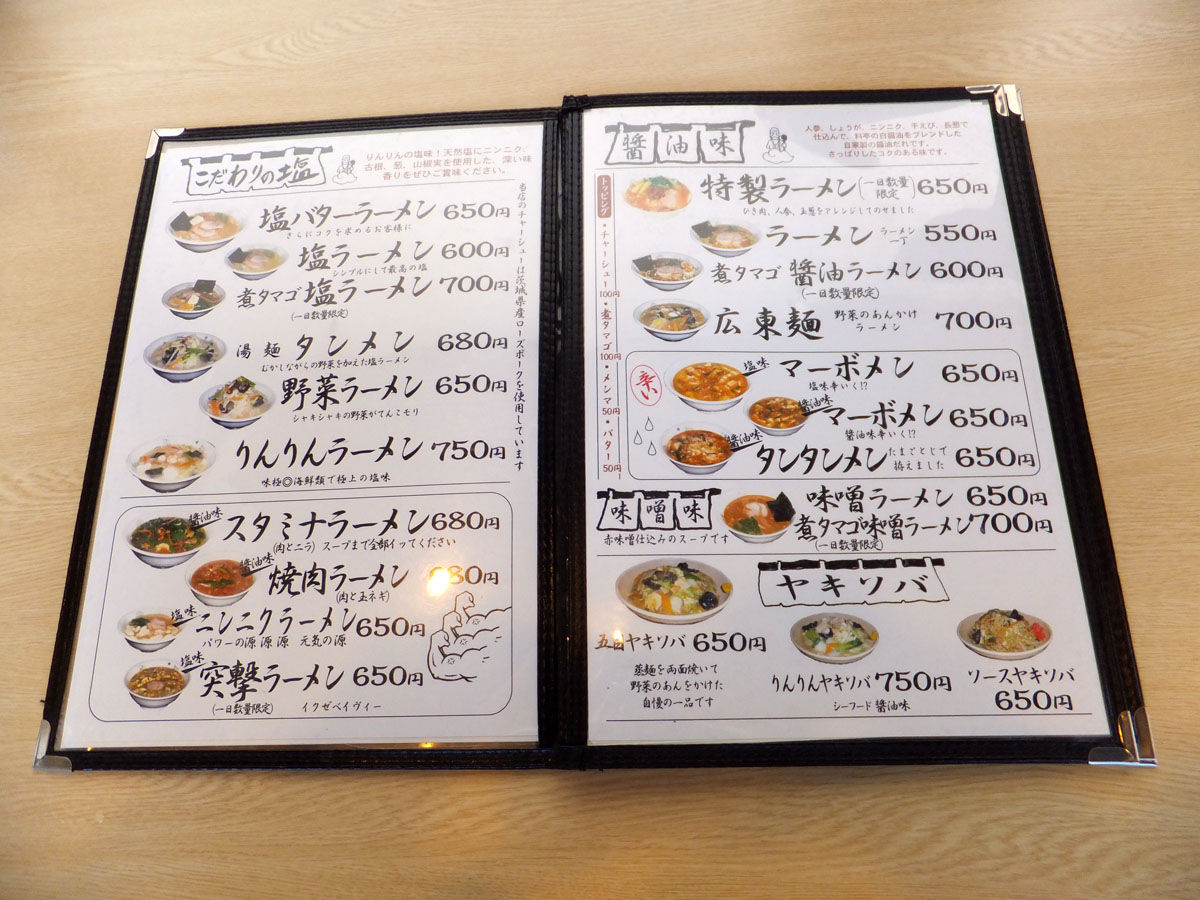 こだわりの塩
りんりんの塩味！天然塩にニンニク、
古根、葱、山椒実を使用した、深い味
香りをぜひご賞味ください。
塩バターラーメン 650円
さらにコクを求めるお客様に
塩ラーメン 600円
シンプルにして最高の塩
煮タマゴ塩ラーメン 700円
(一日数量限定)
湯麺 タンメン 680円
むかしながらの野菜を加えた塩ラーメン
野菜ラーメン 650円
シャキシャキの野菜がてんこモリ
りんりんラーメン 750円
味極◎海鮮類で極上の塩味
当店のチャーシューは茨城県産ローズポークを使用しています
醤油味 スタミナラーメン 680円
(肉とニラ) スープまで全部イッてください
醤油味 焼肉ラーメン 80円
(肉と玉ネギ)
塩味 ニンニクラーメン 650円
パワーの源 源 源 元気の源
塩味 突撃ラーメン 650円
(一日数量限定) イクゼベイヴィー
醤油味
人参、しょうが、ニンニク、干えび、長葱で
仕込んで、料亭の白醤油をブレンドした
自家製の醤油だれです。
さっぱりしたコクのある味です。
トッピング
・チャーシュー100円・煮タマゴ100円・メンマ50円・バター50円
特製ラーメン (一日数量限定) 650円
ひき肉、人参、玉葱をアレンジしてのせました
ラーメン ラーメン一丁 550円
煮タマゴ 醤油ラーメン 600円
(一日数量限定)
広東麺 野菜のあんかけラーメン 700円
辛い
塩味 マーボメン 650円
塩味辛いく!?
醤油味 マーボメン 650円
醤油味辛いく!?
醤油味 タンタンメン たまごとじで拵えました 650円
味噌味
赤味噌仕込みのスープです
味噌ラーメン 650円
煮タマゴ味噌ラーメン 700円
(一日数量限定)
ヤキソバ
五目ヤキソバ 650円
蒸麺を両面焼いて
野菜のあんをかけた
自慢の一品です
りんりんヤキソバ 750円
シーフード醤油味
ソースヤキソバ
650円